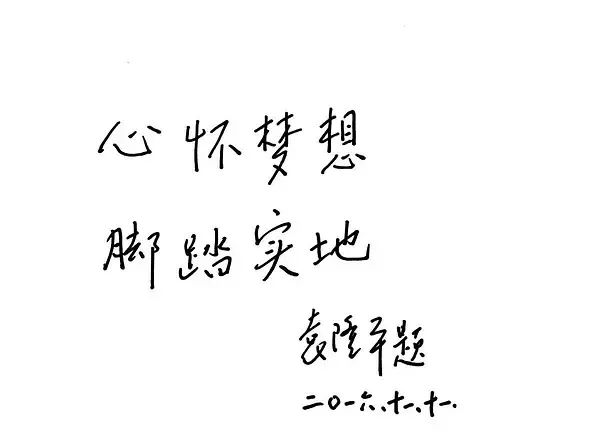 心怀梦想
脚踏实地
袁隆平题
二〇一六、十一、十一.